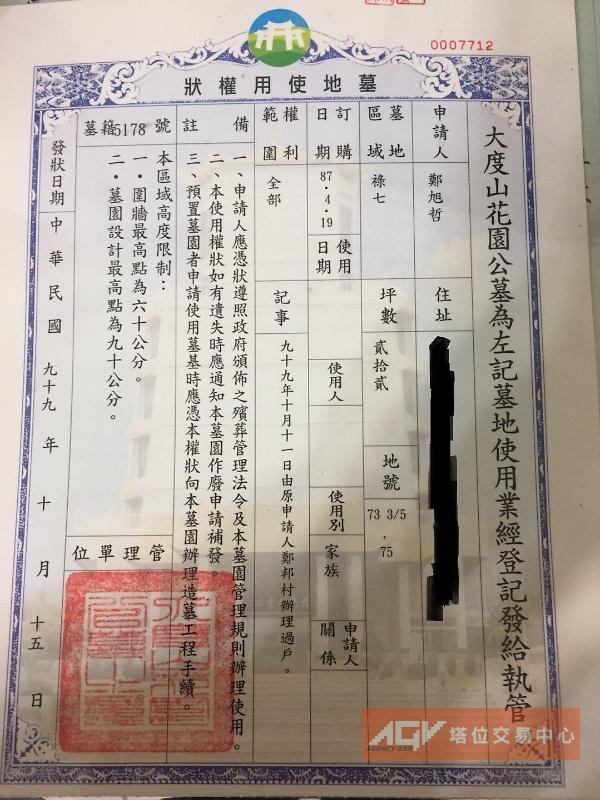 0007712
墓地使用權狀
大度山花園公墓為左記墓地使用業經登記發給執管
申請人
鄭旭哲
住址
墓地區域
祿七
坪數
貳拾貳
地號
73 3/5
,
75
訂購日期
87.4.19
使用日期
使用人
使用別
家族
申請人關係
權利範圍
全部
記事
九十九年十月十一日由原申請人鄭邦村辦理過戶。
備註
一、申請人應憑狀遵照政府頒佈之殯葬管理法令及本墓園管理規則辦理使用。
二、本使用權狀如有遺失時應通知本墓園作廢申請補發。
三、預置墓園者申請使用墓基時應憑本權狀向本墓園辦理造墓工程手續。
墓籍5178號
本區域高度限制：
一．圍牆最高點為六十公分。
二．墓園設計最高點為九十公分。
管理單位
發狀日期
中華民國九十九年十月十五日
AGV 塔位交易中心